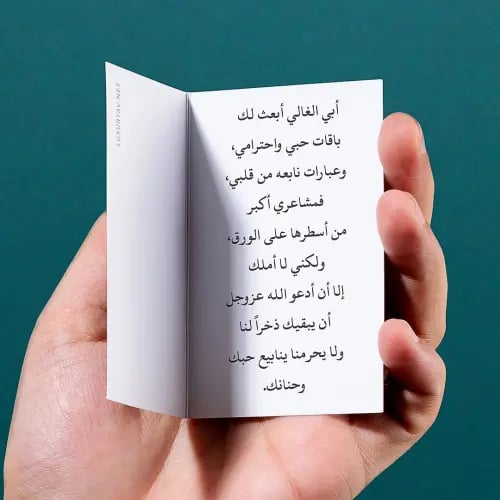 أبي الغالي أبعث لك
باقات حبي واحترامي،
وعبارات نابعه من قلبي،
فمشاعري أكبر
من أسطرها على الورق،
ولكني لا أملك
إلا أن أدعو الله عزوجل
أن يبقيك ذخراً لنا
ولا يحرمنا ينابيع حبك
وحنانك.